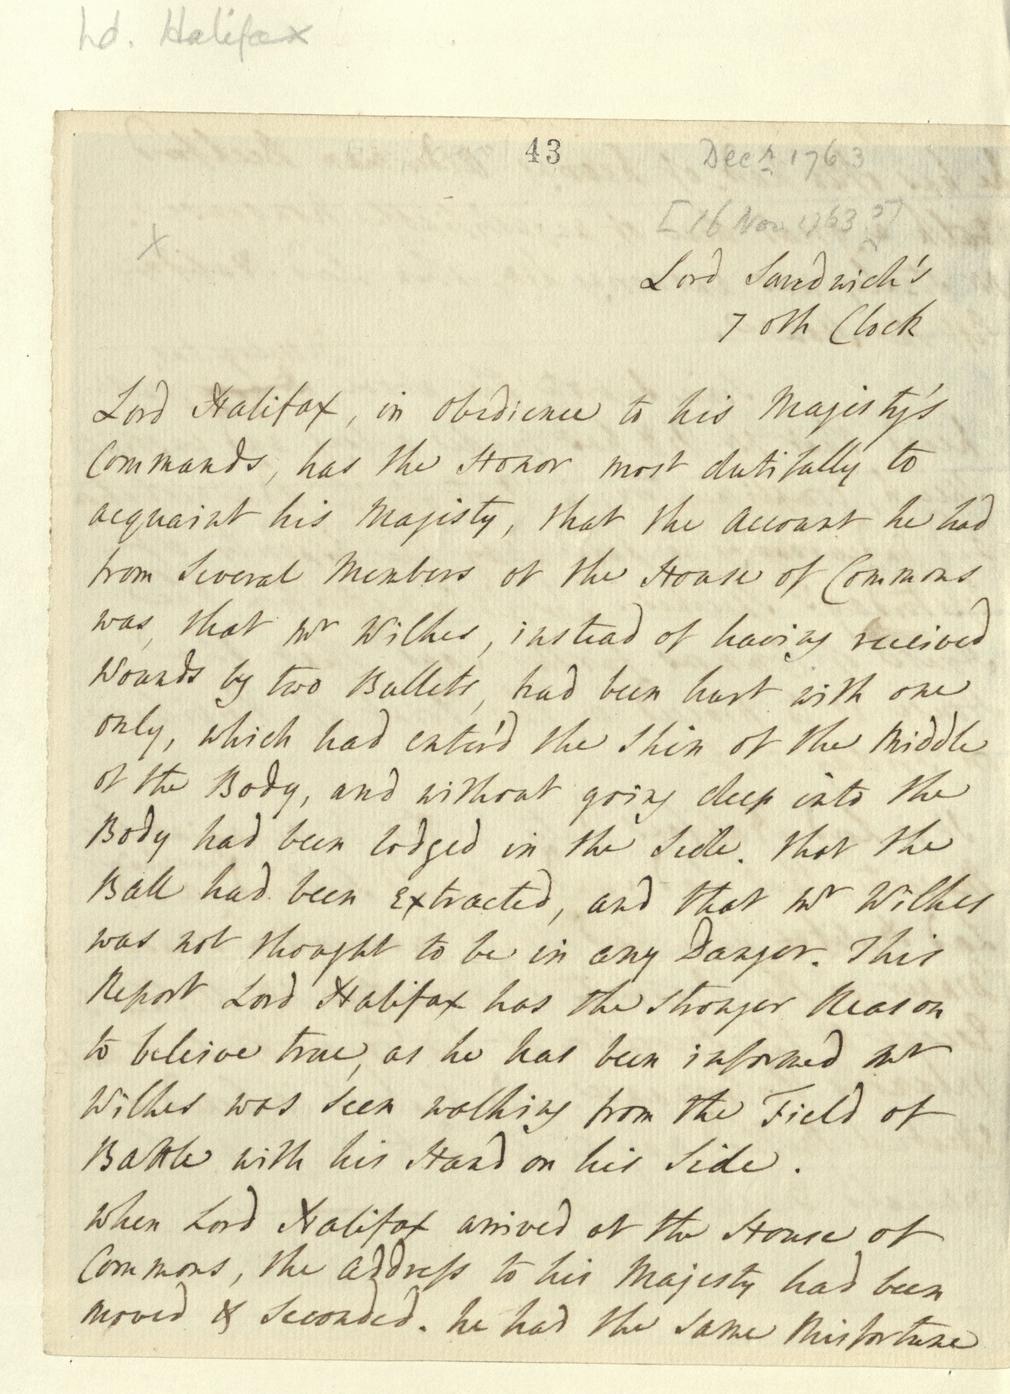 Ld. Halifax
43
Decr. 1763
[16 Nov 1763?]
X
Lord Sandwich's
7 oth Clock
Lord Halifax, in obedience to his Majesty's
Commands, has the Honor most dutifully to
acquaint his Majesty, that the Account he had
from several Members of the House of Commons
was, that Mr Wilkes, instead of having received
Wounds by two Bullets, had been hurt with one
only, which had enter'd the Skin of the Middle
of the Body, and without going deep into the
Body had been lodged in the Side. that the
Ball had been Extracted, and that Mr Wilkes
was not thought to be in any Danger. This
Report Lord Halifax has the stronger Reason
to beleive true, as he has been informed Mr
Wilkes was seen walking from the Field of
Battle with his Hand on his Side.
When Lord Halifax arrived at the House of
Commons, the Address to his Majesty had been
moved & Seconded. he had the same Misfortune